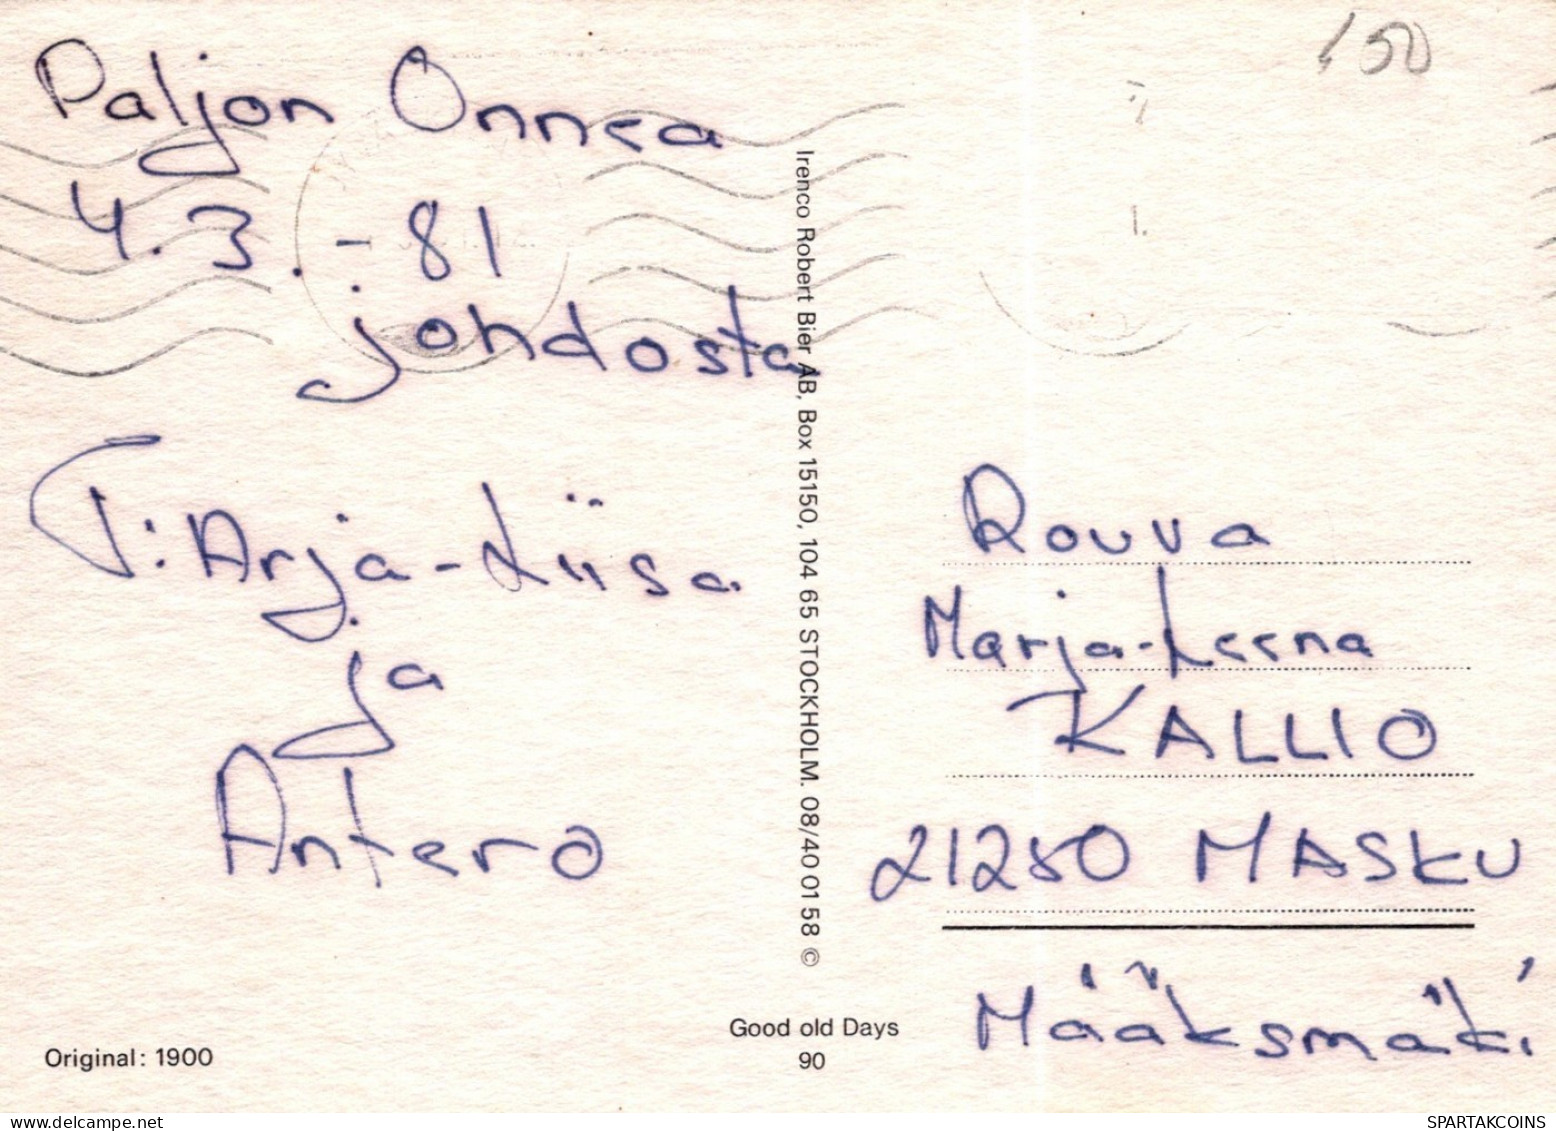 Paljon Onnea
4.3.-81
johdosta
T: Arja-Liisa
ja
Antero
Original: 1900
Irenco Robert Bier AB, Box 15150, 104 65 STOCKHOLM. 08/40 01 58 ©
Good old Days
90
150
Rouva
Marja-Leena
KALLIO
21250 MASKU
Määksmäki
www.delcampe.net
SPARTAKCOINS